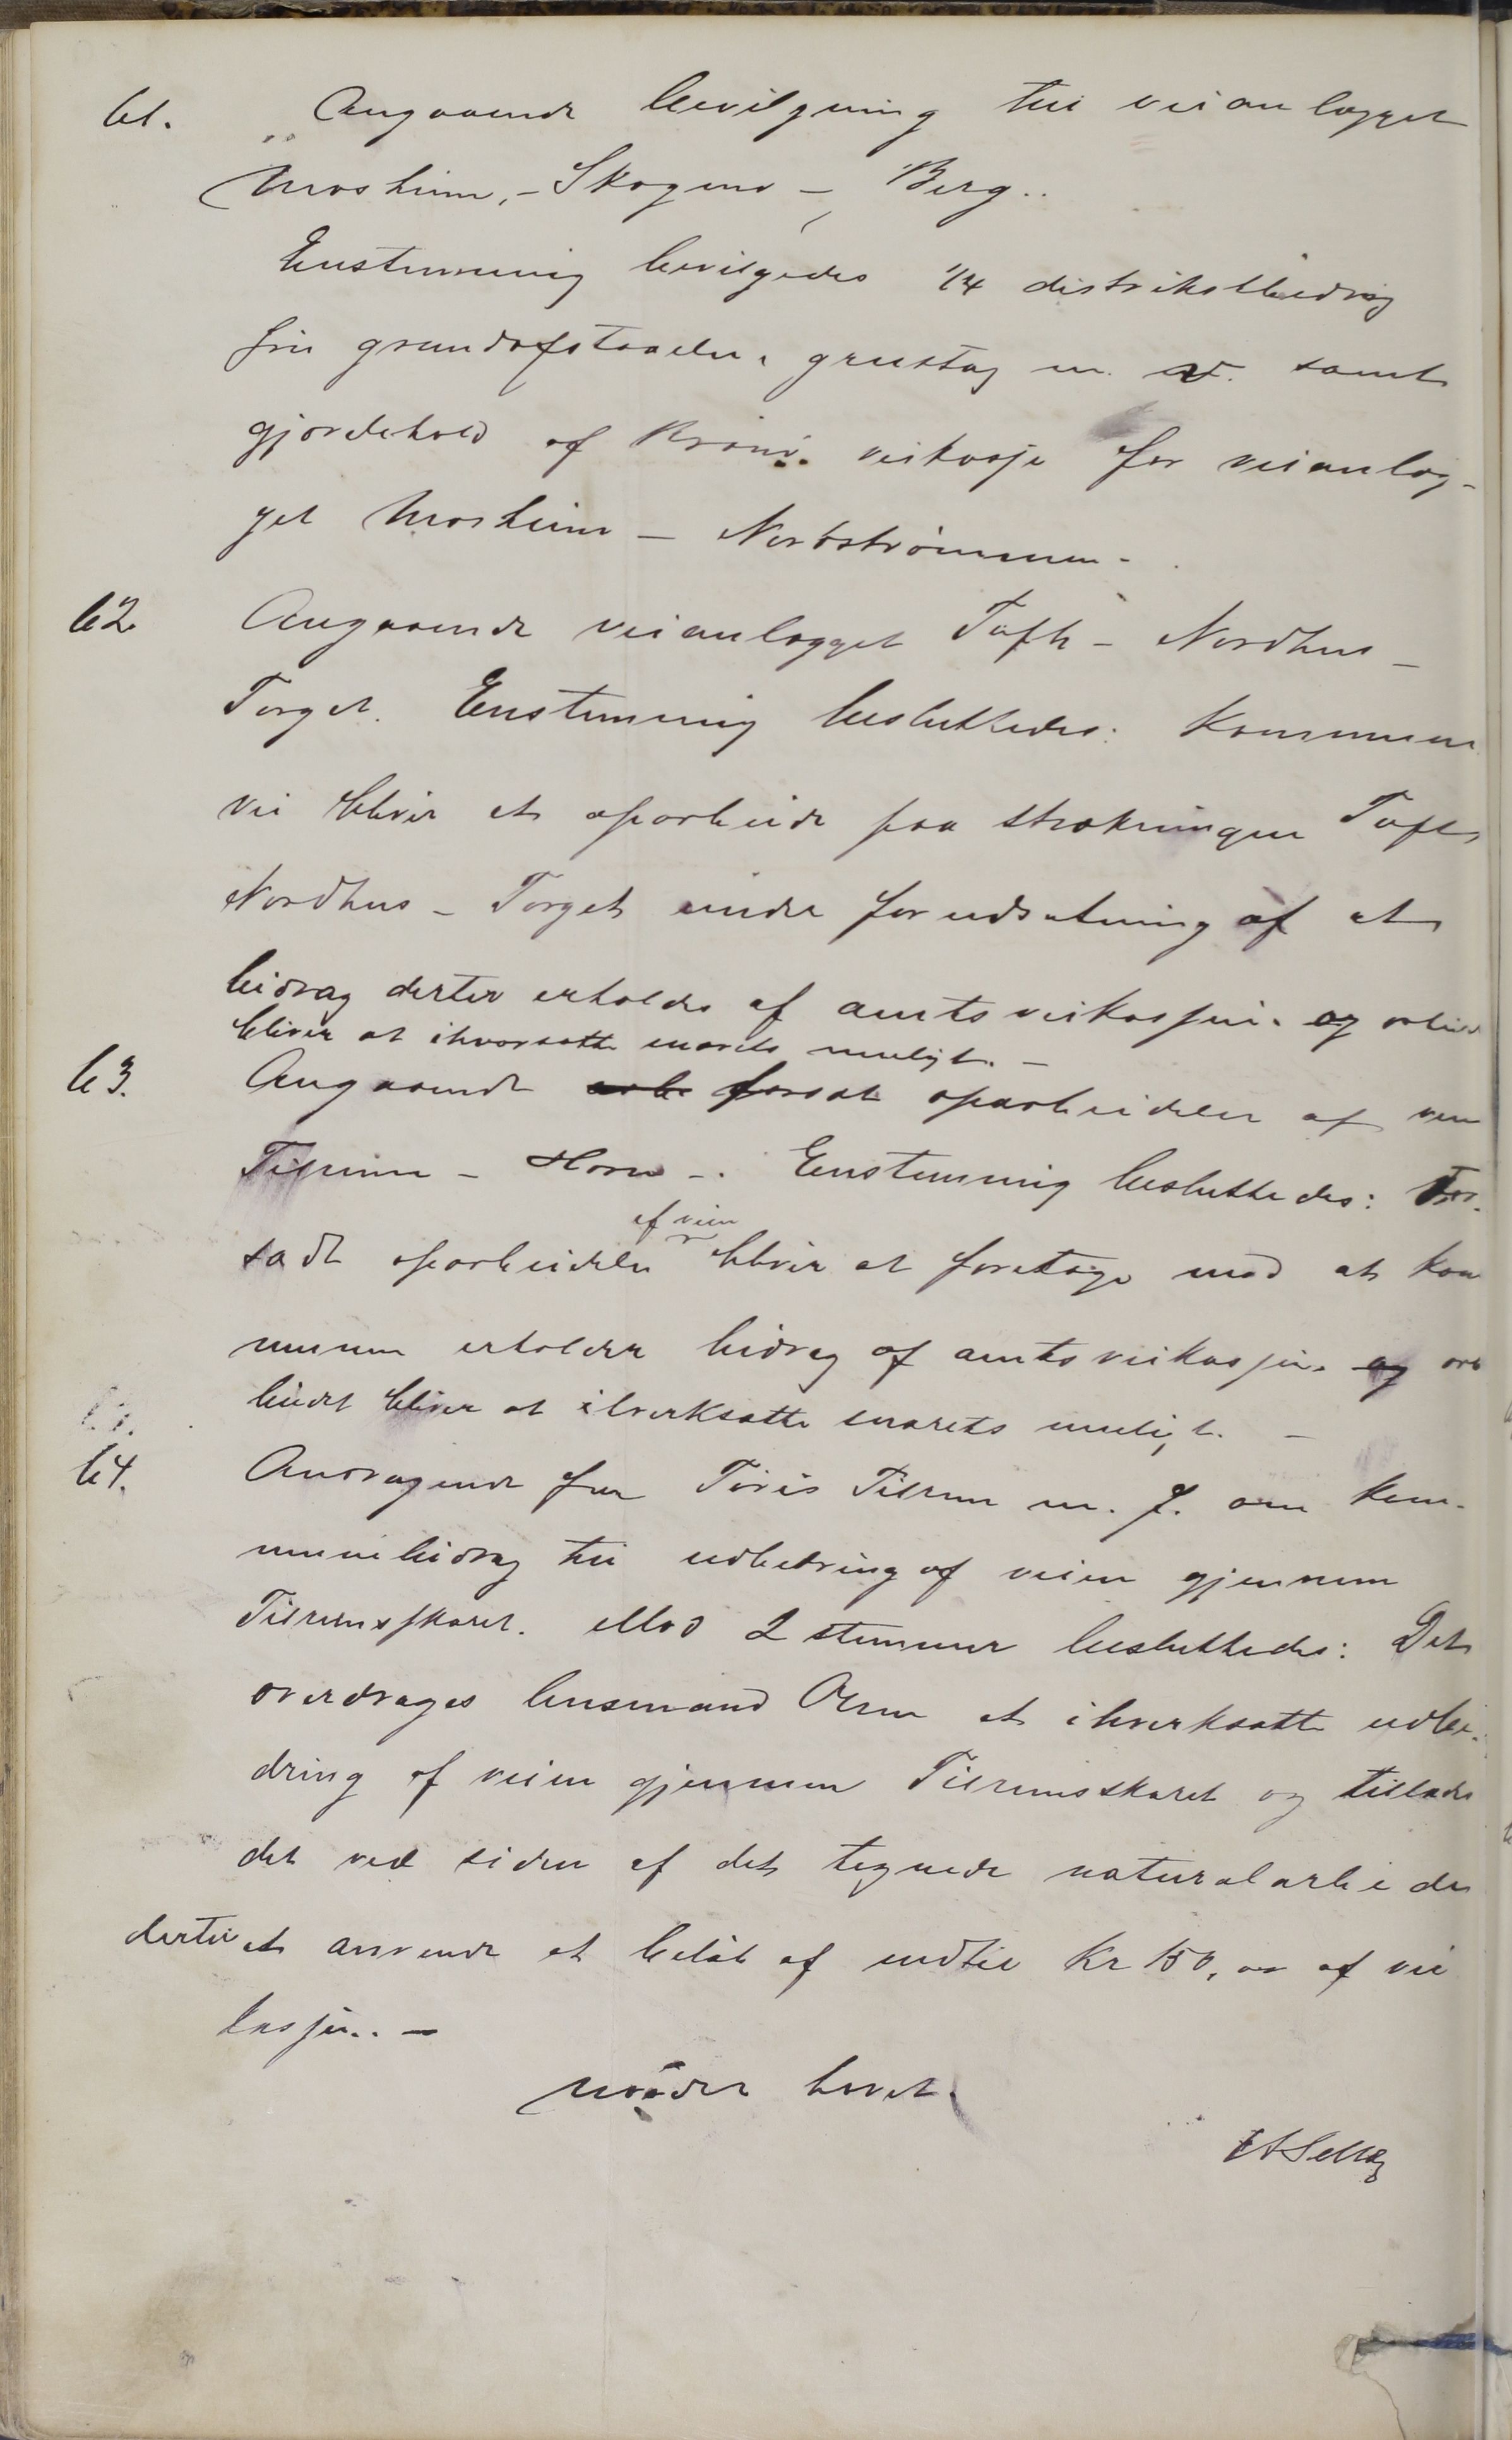 61. Angaaende bevilgning til veianlægget
Mosheim, - Skogmo - Berg..
Enstemmig bevilgedes 1/4 distriktsbidrag
fri grundafstaaelse, grustag m. v. samt
gjerdehold af Brønø veikasse for veianlæg-
get Mosheim - Nordstrømmen -
62 Angaaende veianlægget Toft - Nordhus -
Torget. Enstemmig besluttedes: Kommune
vei bliver at oparbeide paa strækningen Toft
Nordhus - Torget under forudsætning af at
bidrag dertil erholdes af amtsveikassen. og arbeidet
bliver at iværksætte snarets muligt. -
63. Angaaende forsat oparbeidelse af veien
Tilrem - Horn -. Enstemmig besluttedes: For-
sadt oparbeidelse af veien bliver at foretage mod at kom
munen erholder bidrag af amtsveikassen. og ar
beidet bliver at iverksætte snarets muligt. -
64. Andragende fra Tøris Tilrem m. fl. om kom-
munebidrag til udbedring af veien gjennem
Tilremsskaret. Mod 2 stemmer besluttedes: Det
overdrages lensmand Olsen at iverksætte udbe-
dring af veien gjennem Tilremsskaret og tillades
det ved siden af det tegnede naturalarbeide
dertil at anvende et beløb af indtil Kr 150,00 af vei
kassen.. -
Mødet hævet.